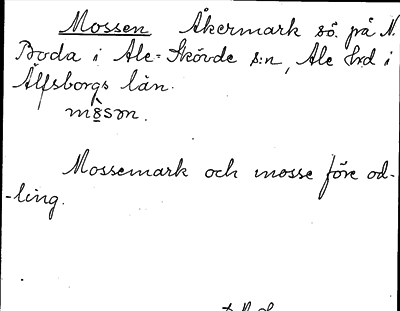 Mossen Åkermark sö. på N.
Boda i Ale-Skövde s:n, Ale hrd i
Älfsborgs län.
Mossemark och mosse före od-
-ling.